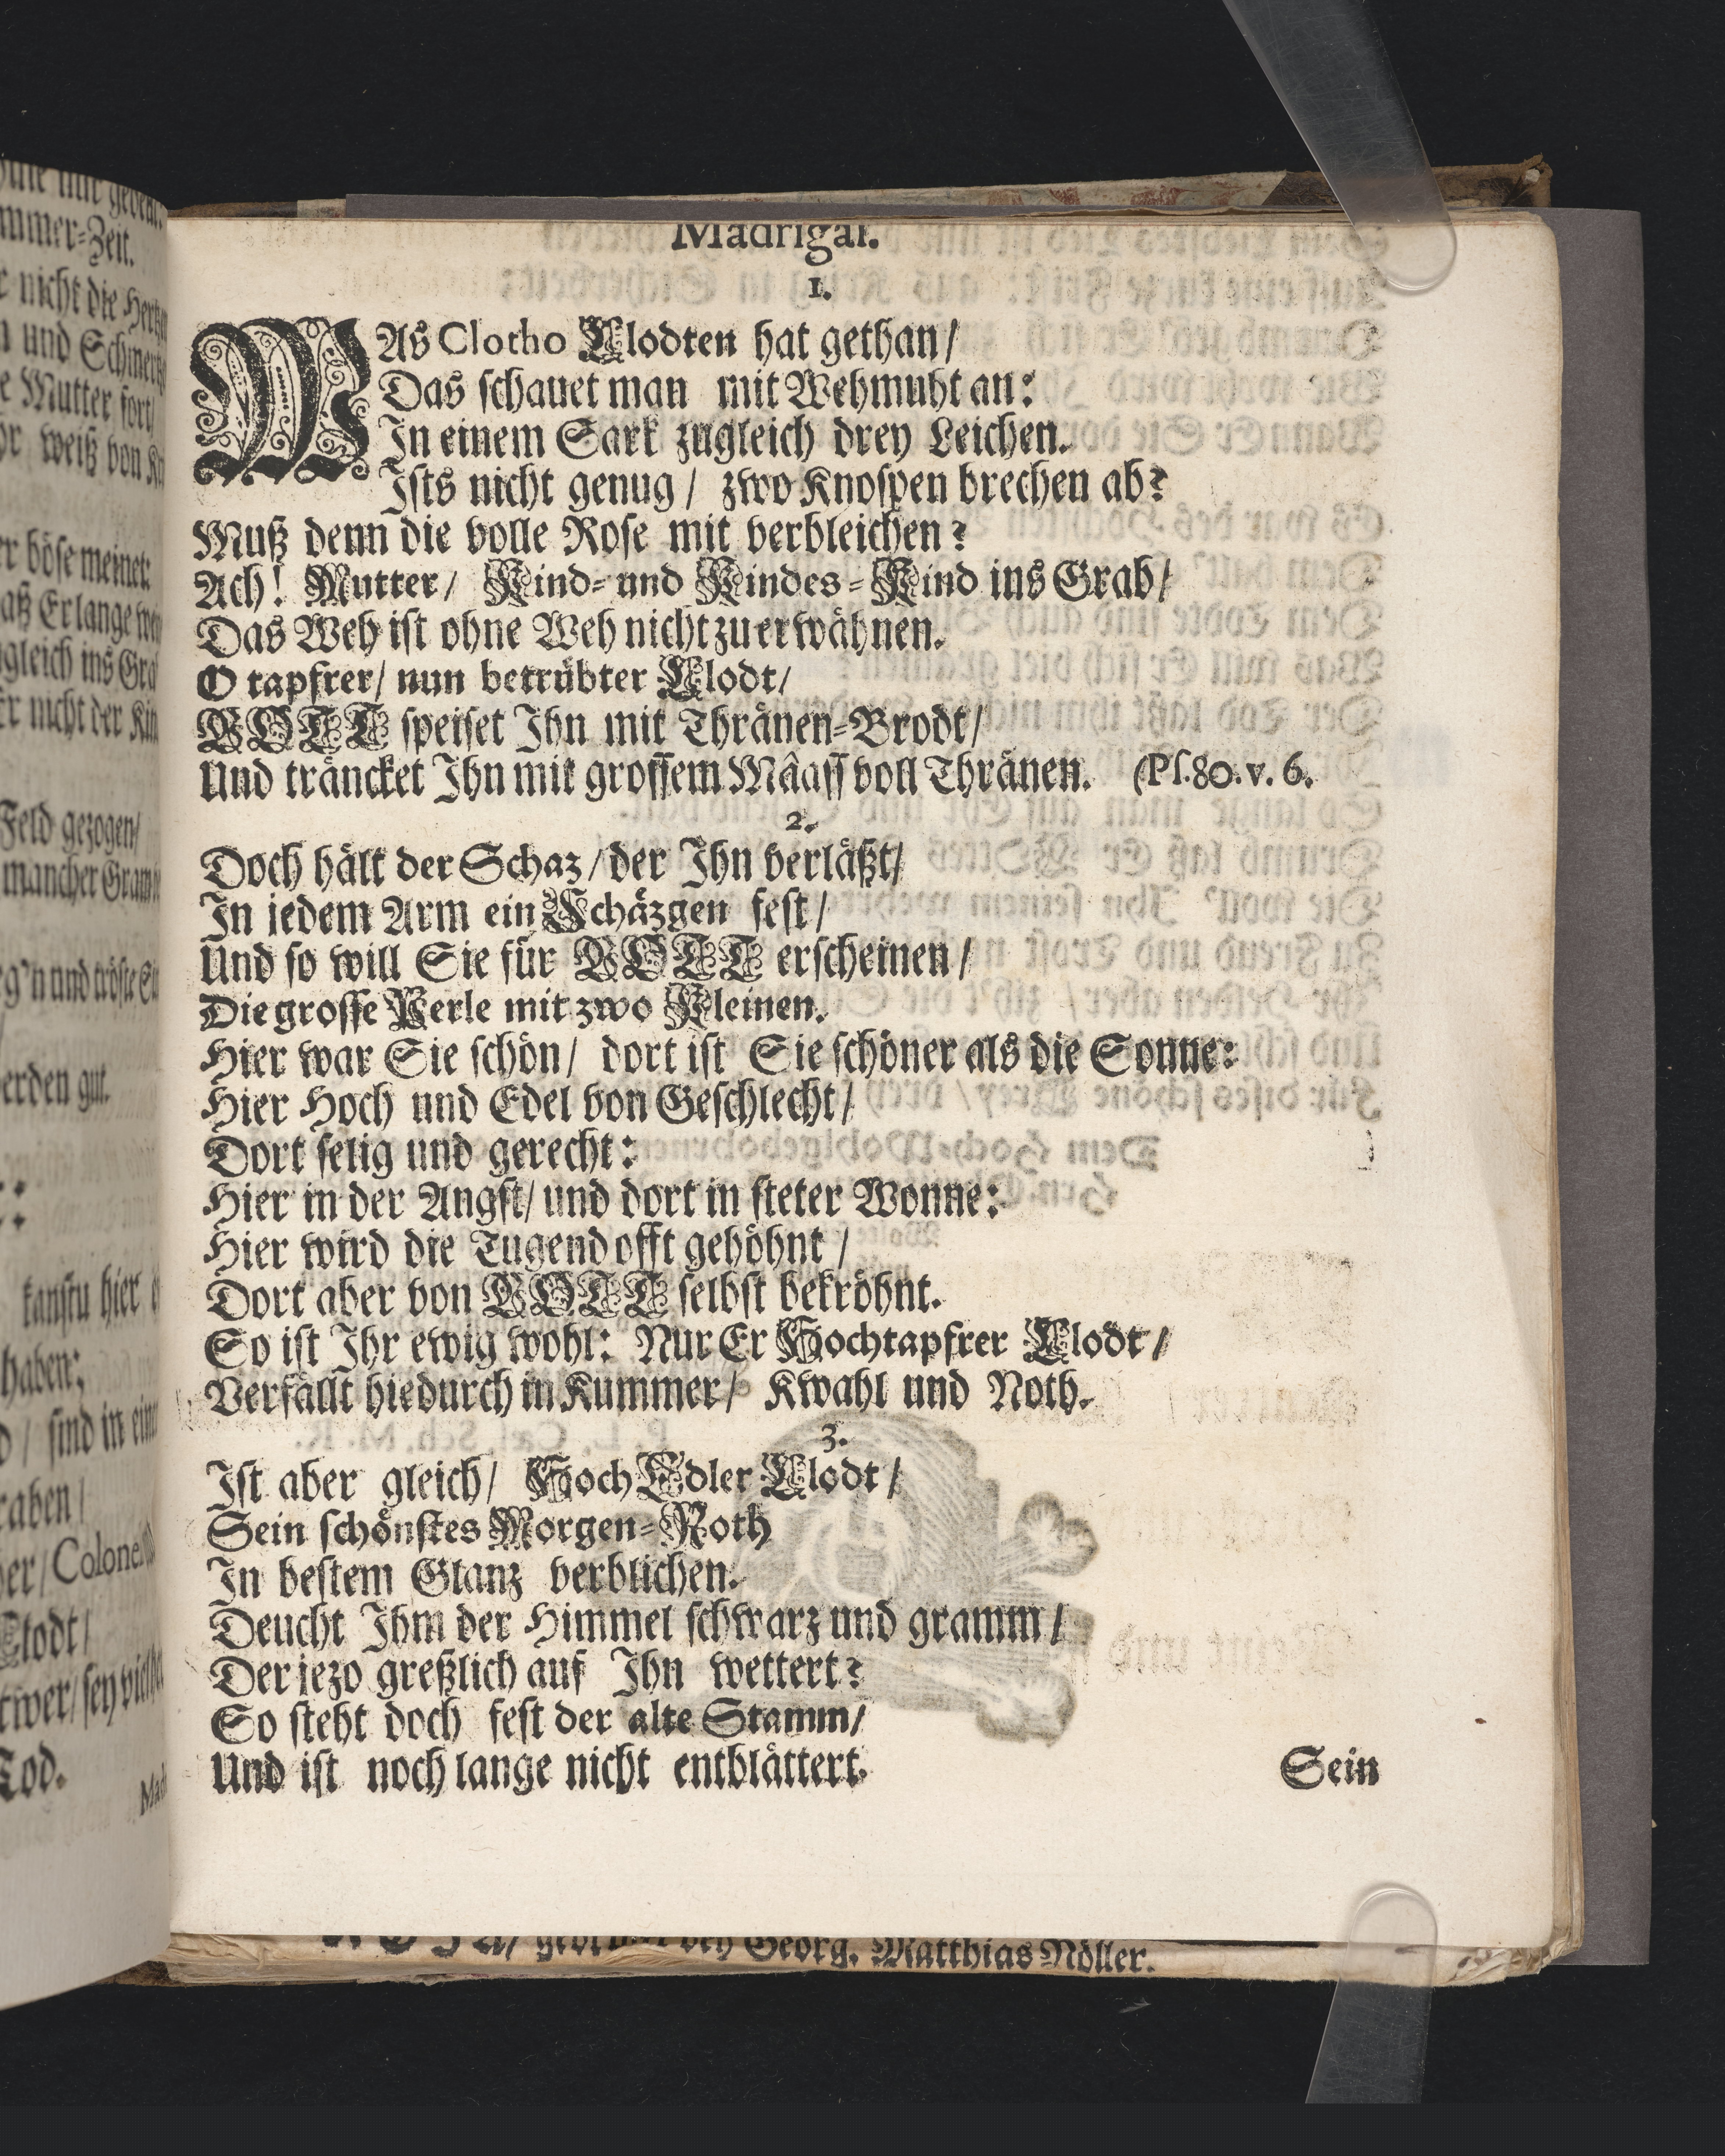 Madrigal.
1.
WAs Clotho Clodten hat gethan/
Das schauet man mit Wehmuht an:
In einem Sark zugleich drey Leichen.
Ists nicht genug/ zwo Knospen brechen ab?
Muß denn die volle Rose mit verbleichen?
Ach! Mutter/ Kind- und Kindes-Kind ins Grab/
Das Weh ist ohne Weh nicht zu erwähnen.
O tapfrer/ nun betrübter Clodt/
GOTT speiset Ihn mit Thränen-Brodt/
Und träncket Ihn mit grossem Mâass voll Thränen. (Ps. 80. v. 6.
2.
Doch hält der Schaz/ der Ihn verläßt/
In jedem Arm ein Schäzgen fest/
Und so will Sie für GOTT erscheinen/
Die grosse Perle mit zwo Kleinen.
Hier war Sie schön/ dort ist Sie schöner als die Sonne:
Hier Hoch und Edel von Geschlecht/
Dort selig und gerecht:
Hier in der Angst/ und dort in steter Wonne:
Hier wird die Tugend offt gehöhnt/
Dort aber von GOTT selbst bekröhnt.
So ist Ihr ewig wohl: Nur Er Hochtapfrer Clodt/
Verfällt hiedurch in Kummer/ Kwahl und Noth.
3.
Ist aber gleich/ HochEdler Clodt/
Sein schönstes Morgen-Roth
In bestem Glanz verblichen.
Deucht Ihm der Himmel schwarz und gramm/
Der jezo greßlich auf Ihn wettert?
So steht doch fest der alte Stamm/
Und ist noch lange nicht entblättert.
Sein
bey Georg. Matthias Nöller.